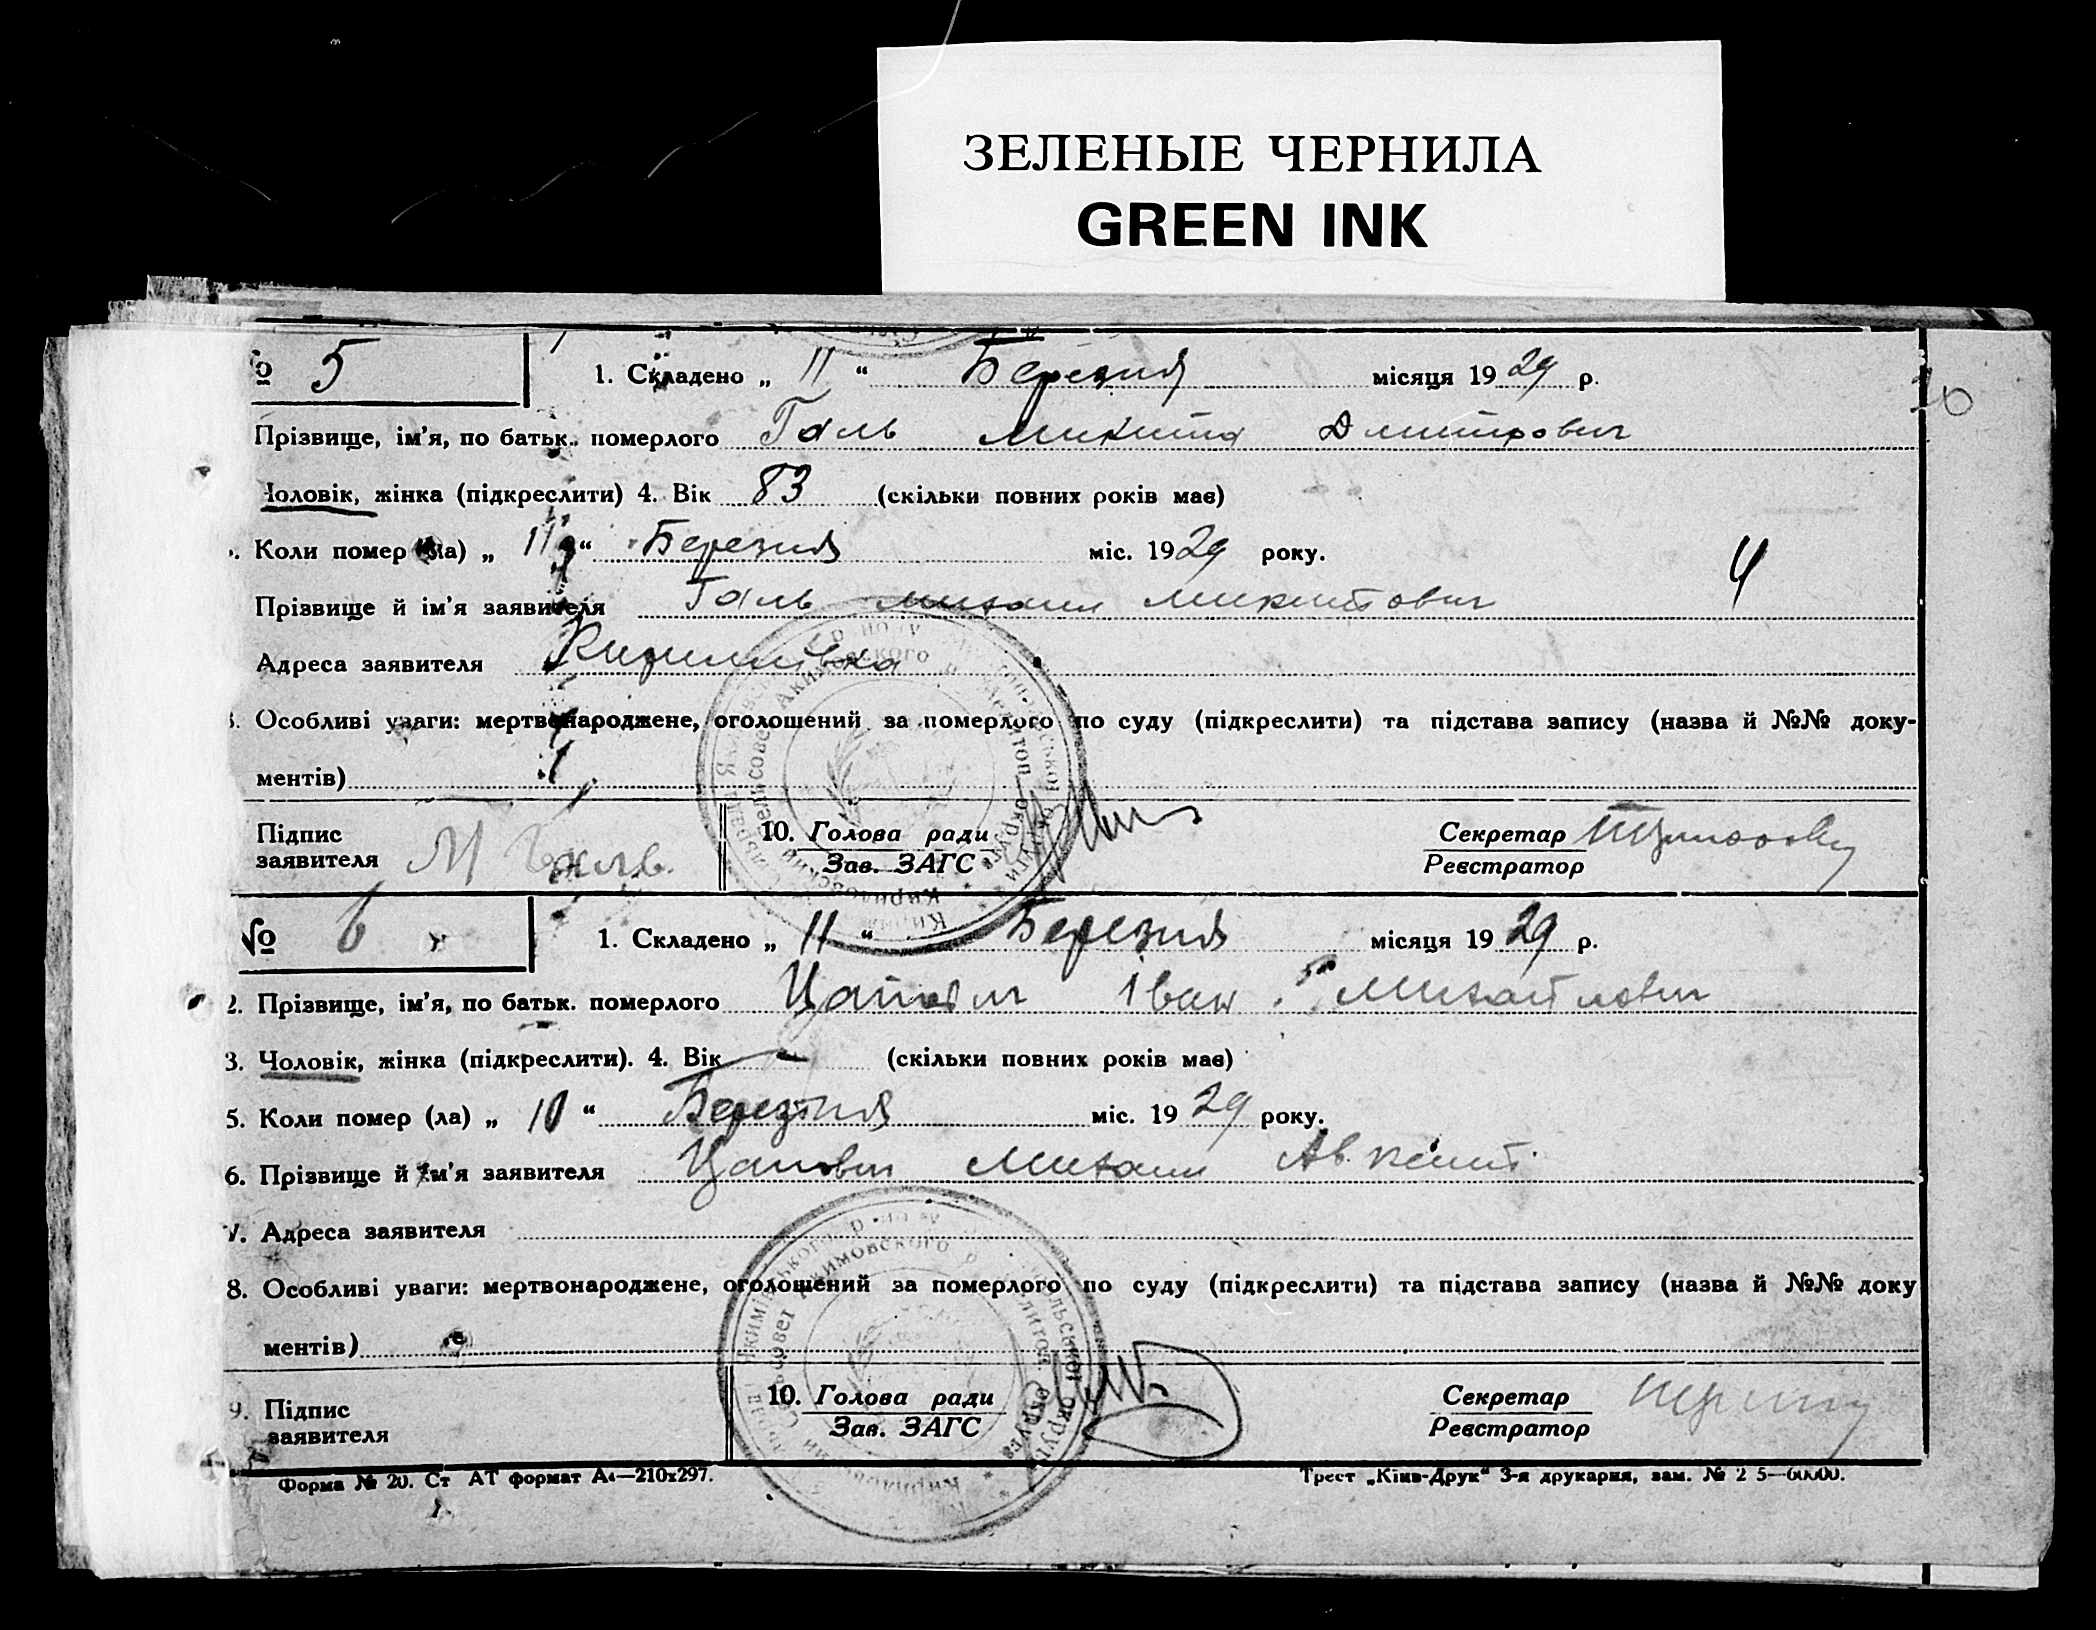 ЗЕЛЕНЫЕ ЧЕРНИЛА
GREEN INK
№ 5
1. Складено „ 11 “ Березня місяця 1929 р.
10
Прізвище, ім'я, по батьк. померлого Галь Микита Дмитрович
Чоловік, жінка (підкреслити) 4. Вік 83 (скільки повних років має)
Коли помер (ла) „ 11 “ Березня міс. 1929 року.
4
Прізвище й ім'я заявителя Галь Михаил Микитович
Адреса заявителя Кирилівка
8. Особливі уваги: мертвонароджене, оголошений за померлого по суду (підкреслити) та підстава запису (назва й №№ доку-
ментів)
Підпис заявителя М Галь
10. Голова ради
Зав. ЗАГС
Секретар
Реєстратор
№ 6
1. Складено „ 11 “ Березня місяця 1929 р.
2. Прізвище, ім'я, по батьк. померлого Іван Михайлович
3. Чоловік, жінка (підкреслити). 4. Вік - (скільки повних років має)
5. Коли помер (ла) „ 10 “ Березня міс. 1929 року.
6. Прізвище й ім'я заявителя Михаил
7. Адреса заявителя
8. Особливі уваги: мертвонароджене, оголошений за померлого по суду (підкреслити) та підстава запису (назва й №№ доку
ментів)
9. Підпис заявителя
10. Голова ради
Зав. ЗАГС
Секретар
Реєстратор
Форма № 20. Ст АТ формат А4—210х297.
Трест „Київ-Друк“ 3-я друкарня, зам. № 2 5—60000.